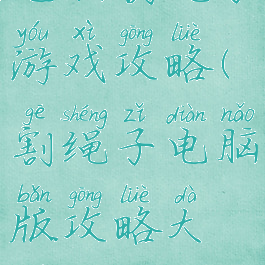 yóu xì gōng lüè
游戏攻略(
gē shéng zǐ diàn nǎo
割绳子电脑
bǎn gōng lüè dà
版攻略大